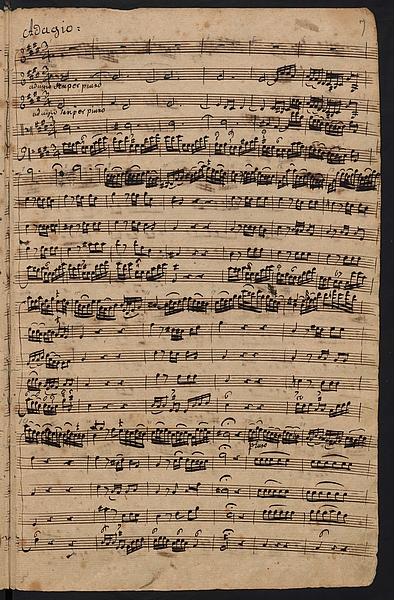 Adagio: 7
adagio semper piano
adagio semper piano
piano